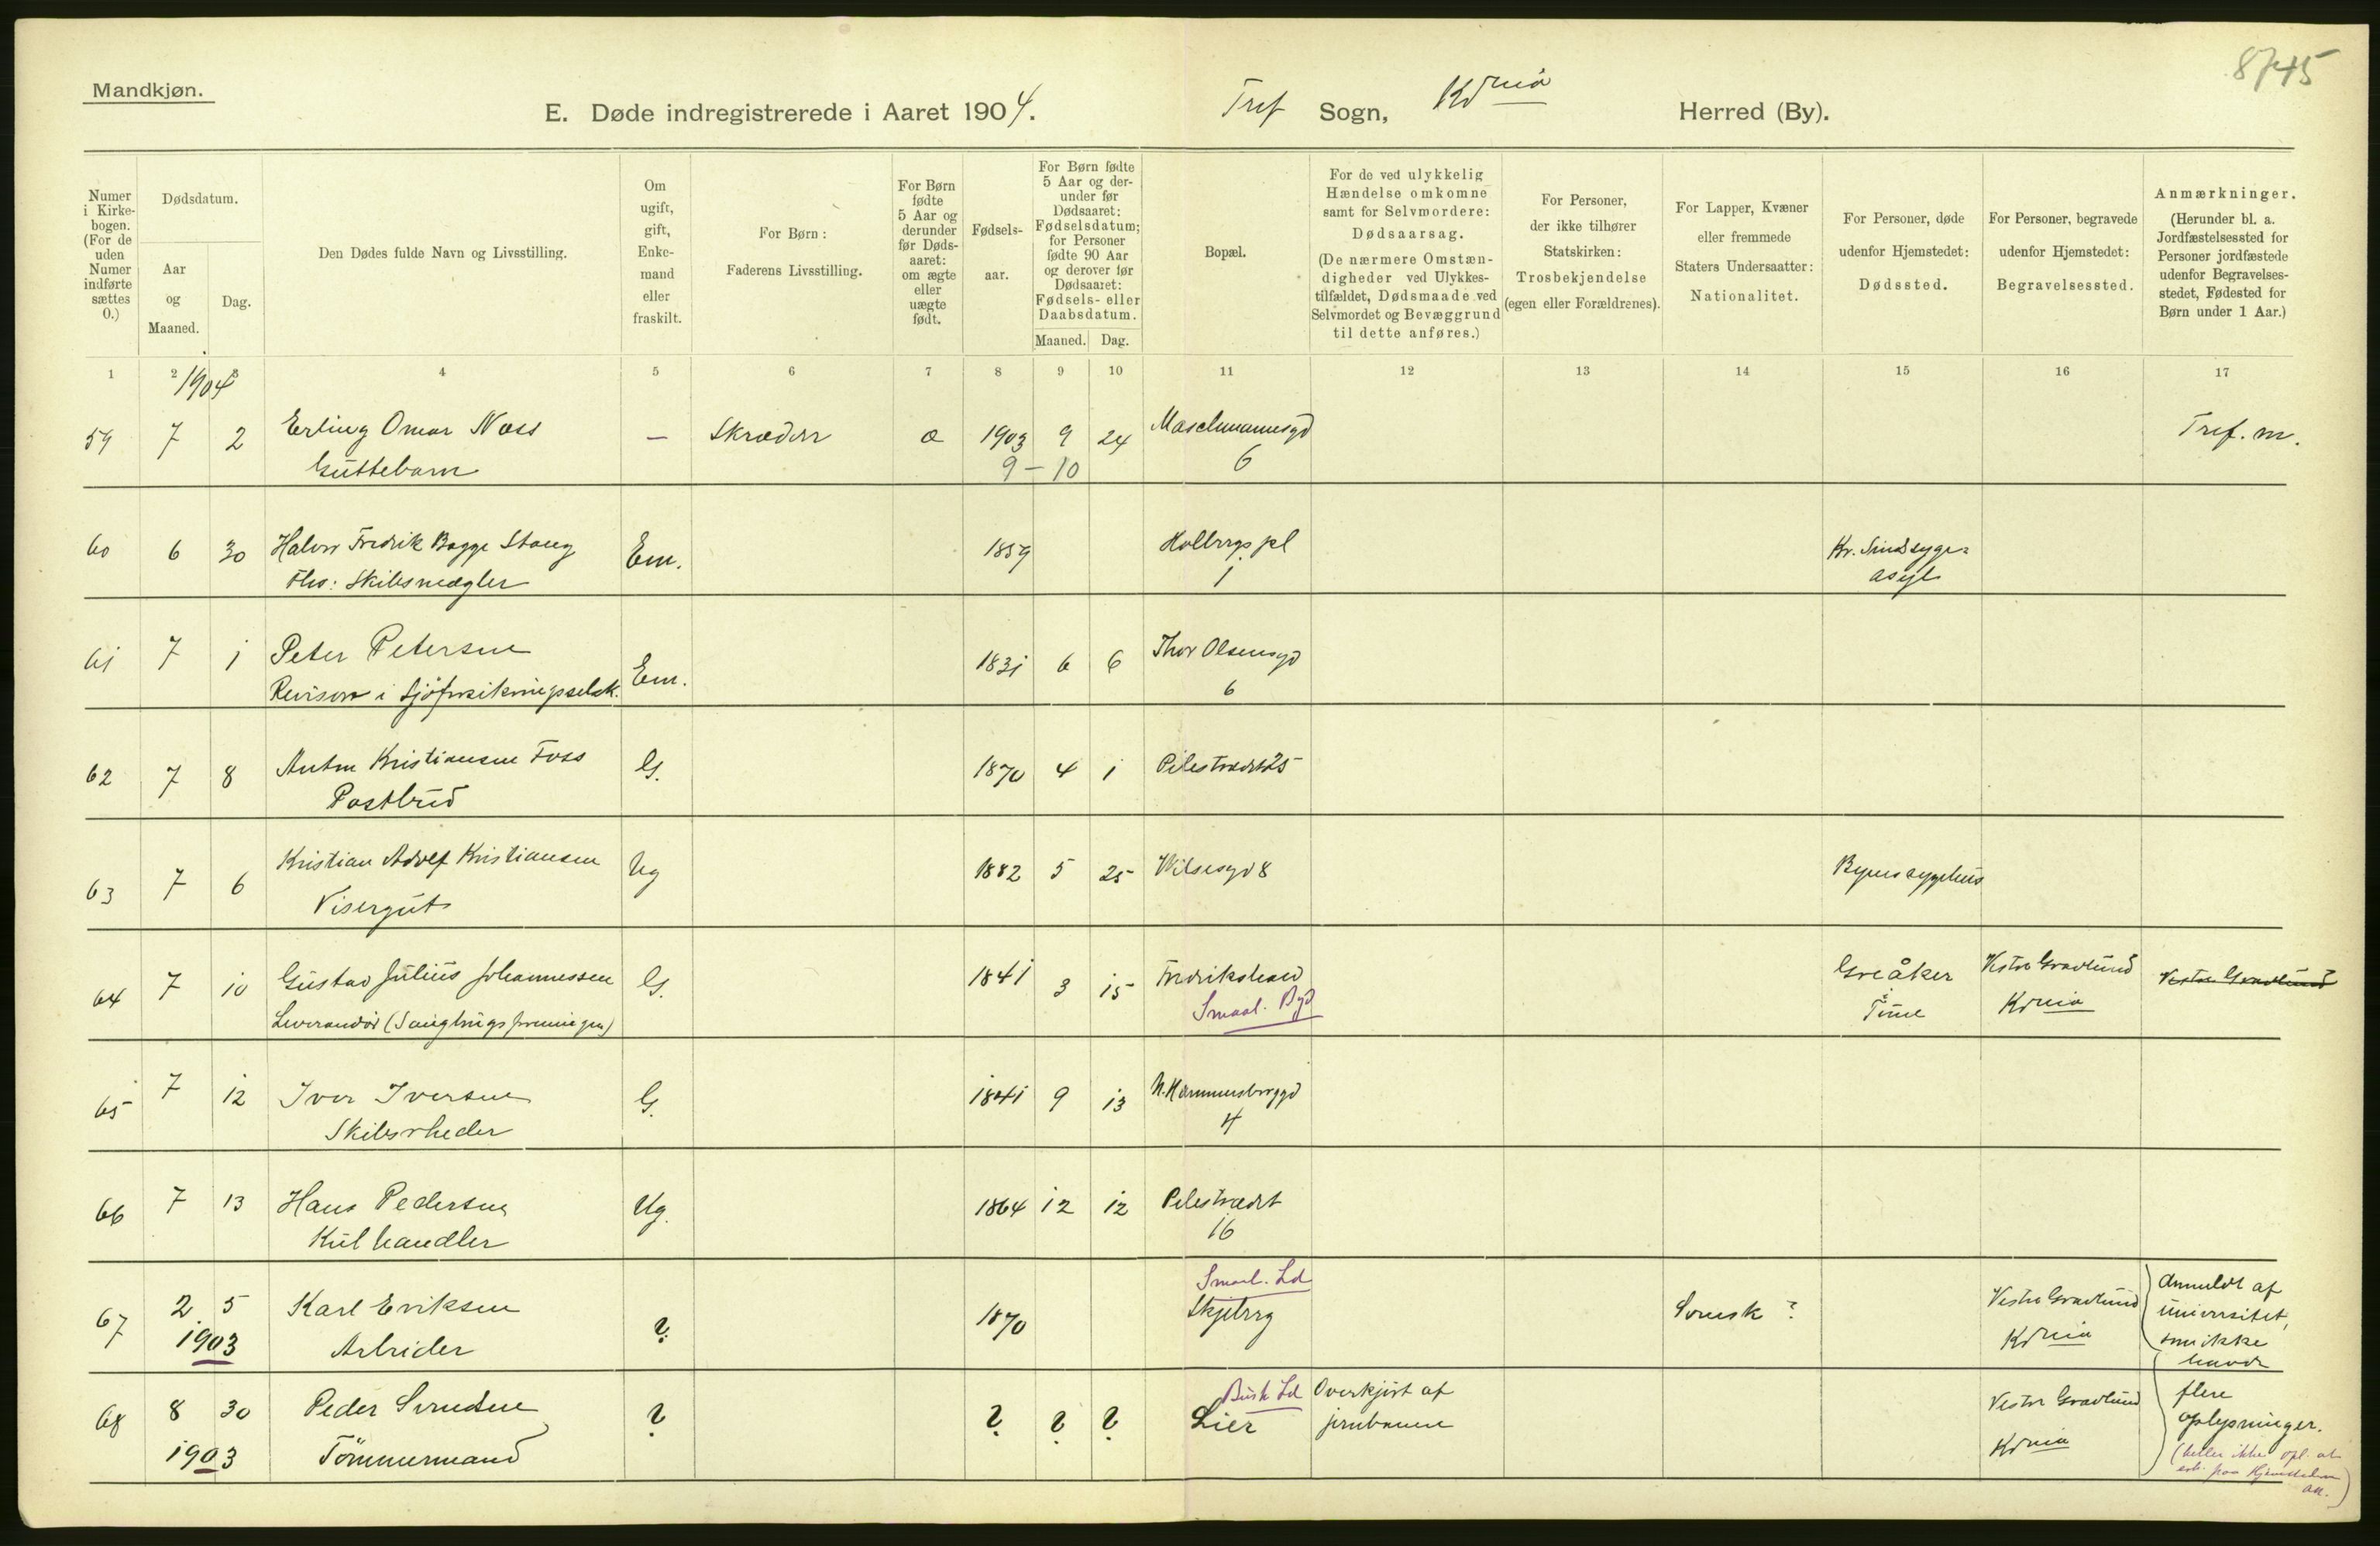 Mandkjøn.
8745
E. Døde indregistrerede i Aaret 1904.
Tref Sogn, Krnia Herred (By).
Numer i Kirkebogen. (For de uden Numer indførte sættes 0.)
Dødsdatum.
Aar og Maaned.
Dag.
Den Dødes fulde Navn og Livsstilling.
Om ugift, gift, Enkemand eller fraskilt.
For Børn: Faderens Livsstilling.
For Børn fødte 5 Aar og derunder før Dødsaaret: om ægte eller uægte født.
Fødselsaar.
For Børn fødte 5 Aar og derunder før Dødsaaret: Fødselsdatum; for Personer fødte 90 Aar og derover før Dødsaaret: Fødsels- eller Daabsdatum.
Maaned. Dag.
Bopæl.
For de ved ulykkelig Hændelse omkomne samt for Selvmordere: Dødsaarsag. (De nærmere Omstændigheder ved Ulykkestilfældet, Dødsmaade ved Selvmordet og Bevæggrund til dette anføres.)
For Personer, der ikke tilhører Statskirken: Trosbekjendelse (egen eller Forældrenes).
For Lapper, Kvæner eller fremmede Staters Undersaatter: Nationalitet.
For Personer, døde udenfor Hjemstedet: Dødssted.
For Personer, begravede udenfor Hjemstedet: Begravelsessted.
Anmærkninger. (Herunder bl. a. Jordfæstelsessted for Personer jordfæstede udenfor Begravelsesstedet, Fødested for Børn under 1 Aar.)
1 2 3 4 5 6 7 8 9 10 11 12 13 14 15 16 17
1904
59 7 2 Erling Omar Næss — Skræder æ 1903 9 24 Maschmannsgd Tref. m.
Guttebarn 9-10 6
60 6 30 Halvor Fredrik Bagge Stang Em. 1859 Holbergs pl Kr. Sindssyge-
Fhv: Skibsmægler 1 asyl
61 7 1 Peter Petersen Em. 1831 6 6 Thor Olsensgd
Revisor i Sjøforsikringsselsk. 6
62 7 8 Anton Kristiansen Foss G. 1870 4 1 Pilestrædet 25
Postbud
63 7 6 Kristian Adolf Kristiansen Ug 1882 5 25 Wilsesgd 8 Byens sygehus
Visergut
64 7 10 Gustav Julius Johannessen G. 1841 3 15 Fredrikshald Greåker Vestre Gravlund Vestre Gravlund
Leverandør (Saugbrugsforeningen) Smaal. Byd i Tune Krnia
65 7 12 Iver Iversen G. 1841 9 13 N. Hammersborggd
Skibsrheder 4
66 7 13 Hans Pedersen Ug. 1864 12 12 Pilestrædet
Kulhandler 16
67 2 5 Karl Eriksen ? 1870 Smaal. Ld Svensk ? Vestre Gravlund Anmeldt af
1903 Arbeider Skjeberg Krnia universitet,
som ikke
havde
68 8 30 Peder Svendsen ? ? ? ? Busk Ld Overkjørt af Vestre Gravlund flere
1903 Tömmermand Lier jernbanen Krnia oplysninger.
(heller ikke opl. at
erh. paa Hjemstederne